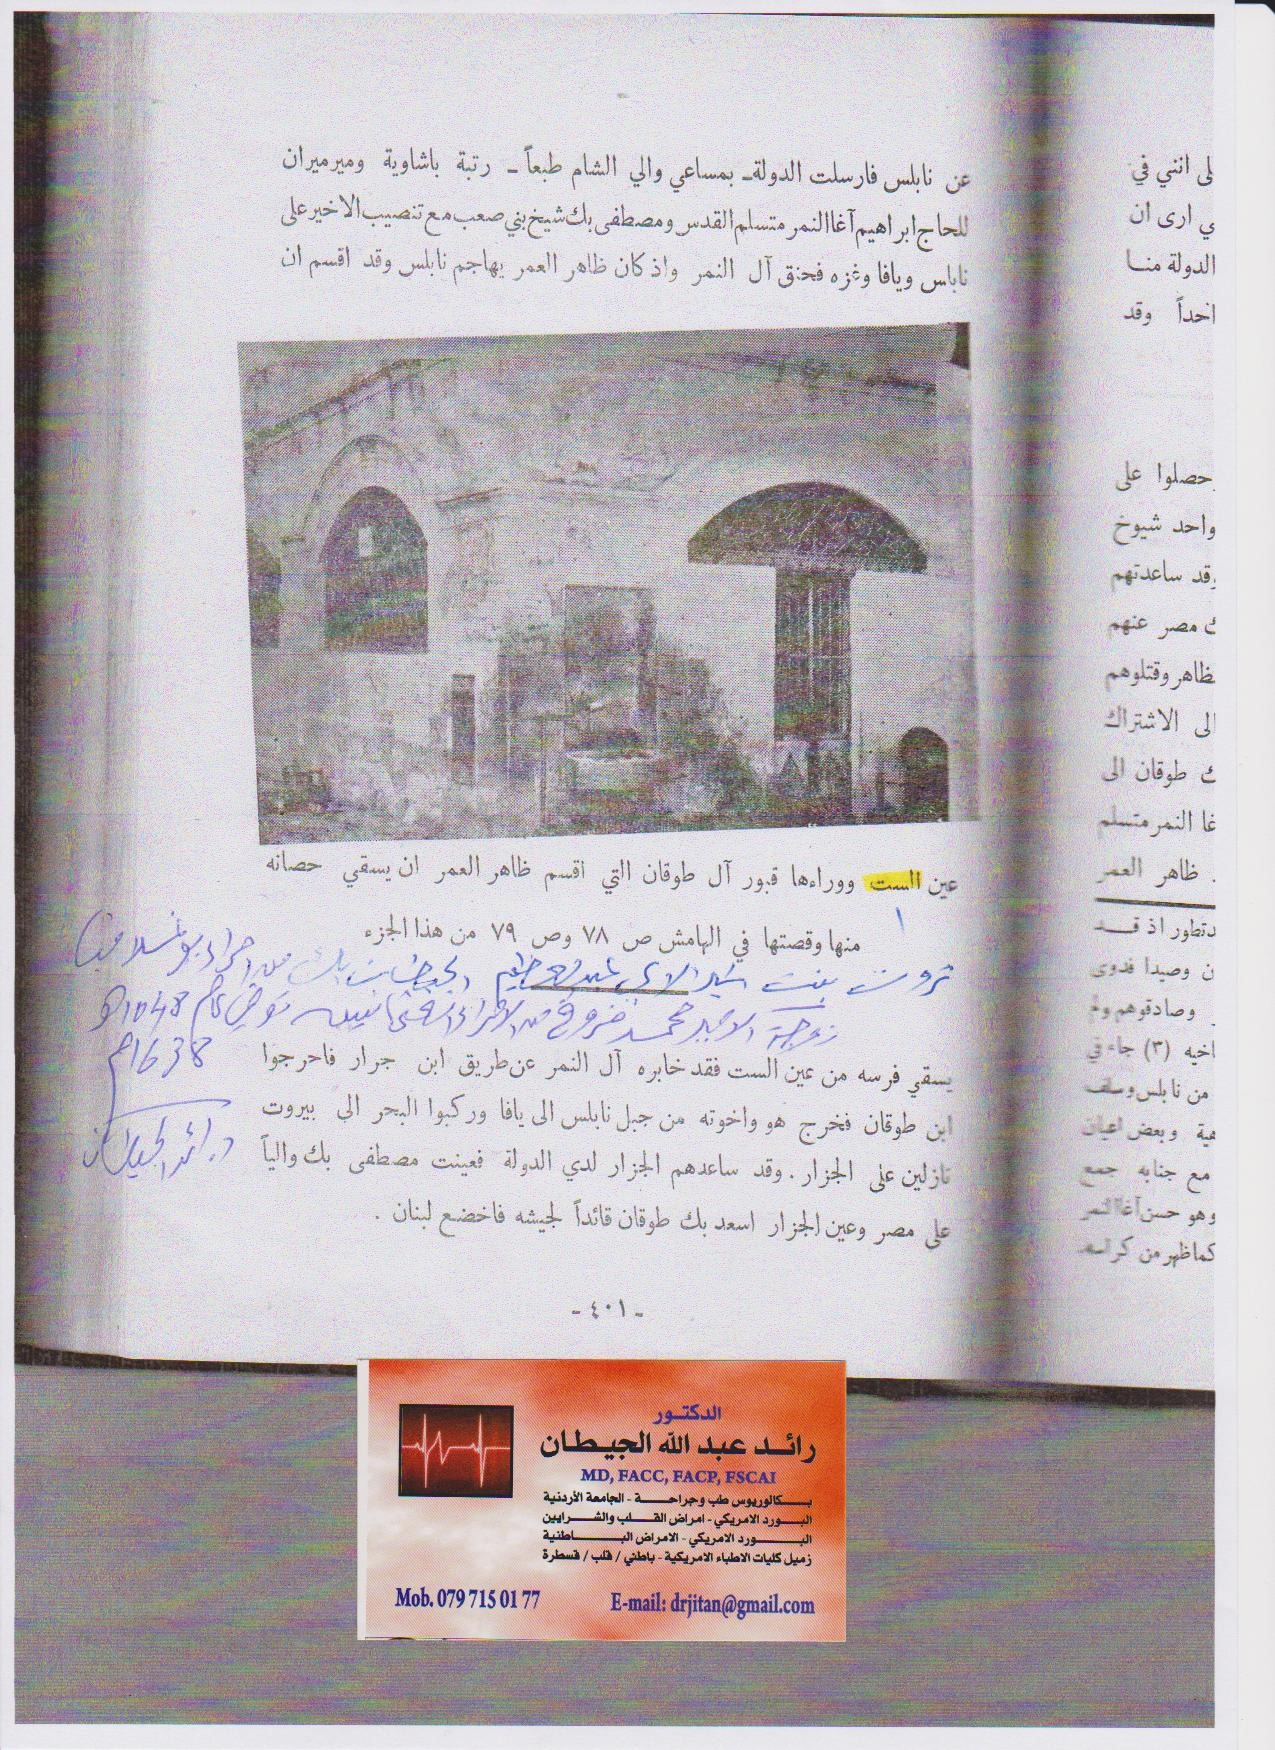 عن نابلس فارسلت الدولة ـ بمساعي والي الشام طبعاً ـ رتبة باشاوية وميرميران
للحاج ابراهيم آغا النمر متسلم القدس ومصطفى بك شيخ بني صعب مع تنصيب الاخير على
نابلس ويافا وغزه فحنق آل النمر واذ كان ظاهر العمر يهاجم نابلس وقد اقسم ان
عين الست ووراءها قبور آل طوقان التي اقسم ظاهر العمر ان يسقي حصانه
منها وقصتها في الهامش ص ٧٨ وص ٧٩ من هذا الجزء
١
ثروت بنت
زوجة الامير محمد فروخ من الامراء
1048هـ
1638م
يسقي فرسه من عين الست فقد خابره آل النمر عن طريق ابن جرار فاخرجوا
ابن طوقان فخرج هو واخوته من جبل نابلس الى يافا وركبوا البحر الى بيروت
نازلين على الجزار . وقد ساعدهم الجزار لدي الدولة فعينت مصطفى بك والياً
على مصر وعين الجزار اسعد بك طوقان قائداً لجيشه فاخضع لبنان .
د. رائد الجيطان
- ٤٠١ -
لى انني في
ي ارى ان
الدولة منا
احداً وقد
حصلوا على
واحد شيوخ
وقد ساعدتهم
ك مصر عنهم
ظاهر وقتلوهم
الى الاشتراك
ك طوقان الى
غا النمر متسلم
. ظاهر العمر
دتطور اذ قد
ن وصيدا فدوى
وصادقوهم ولم
اخيه (٣) جاء في
من نابلس وسلف
هية وبعض اعيان
مع جنابه جمع
وهو حسن آغا النمر
كما ظهر من
الدكتور
رائد عبد الله الجيطان
MD, FACC, FACP, FSCAI
بكالوريوس طب وجراحة - الجامعة الأردنية
البورد الامريكي - امراض القلب والشرايين
البورد الامريكي - الامراض الباطنية
زميل كليات الاطباء الامريكية - باطني / قلب / قسطرة
Mob. 079 715 01 77
E-mail: drjitan@gmail.com